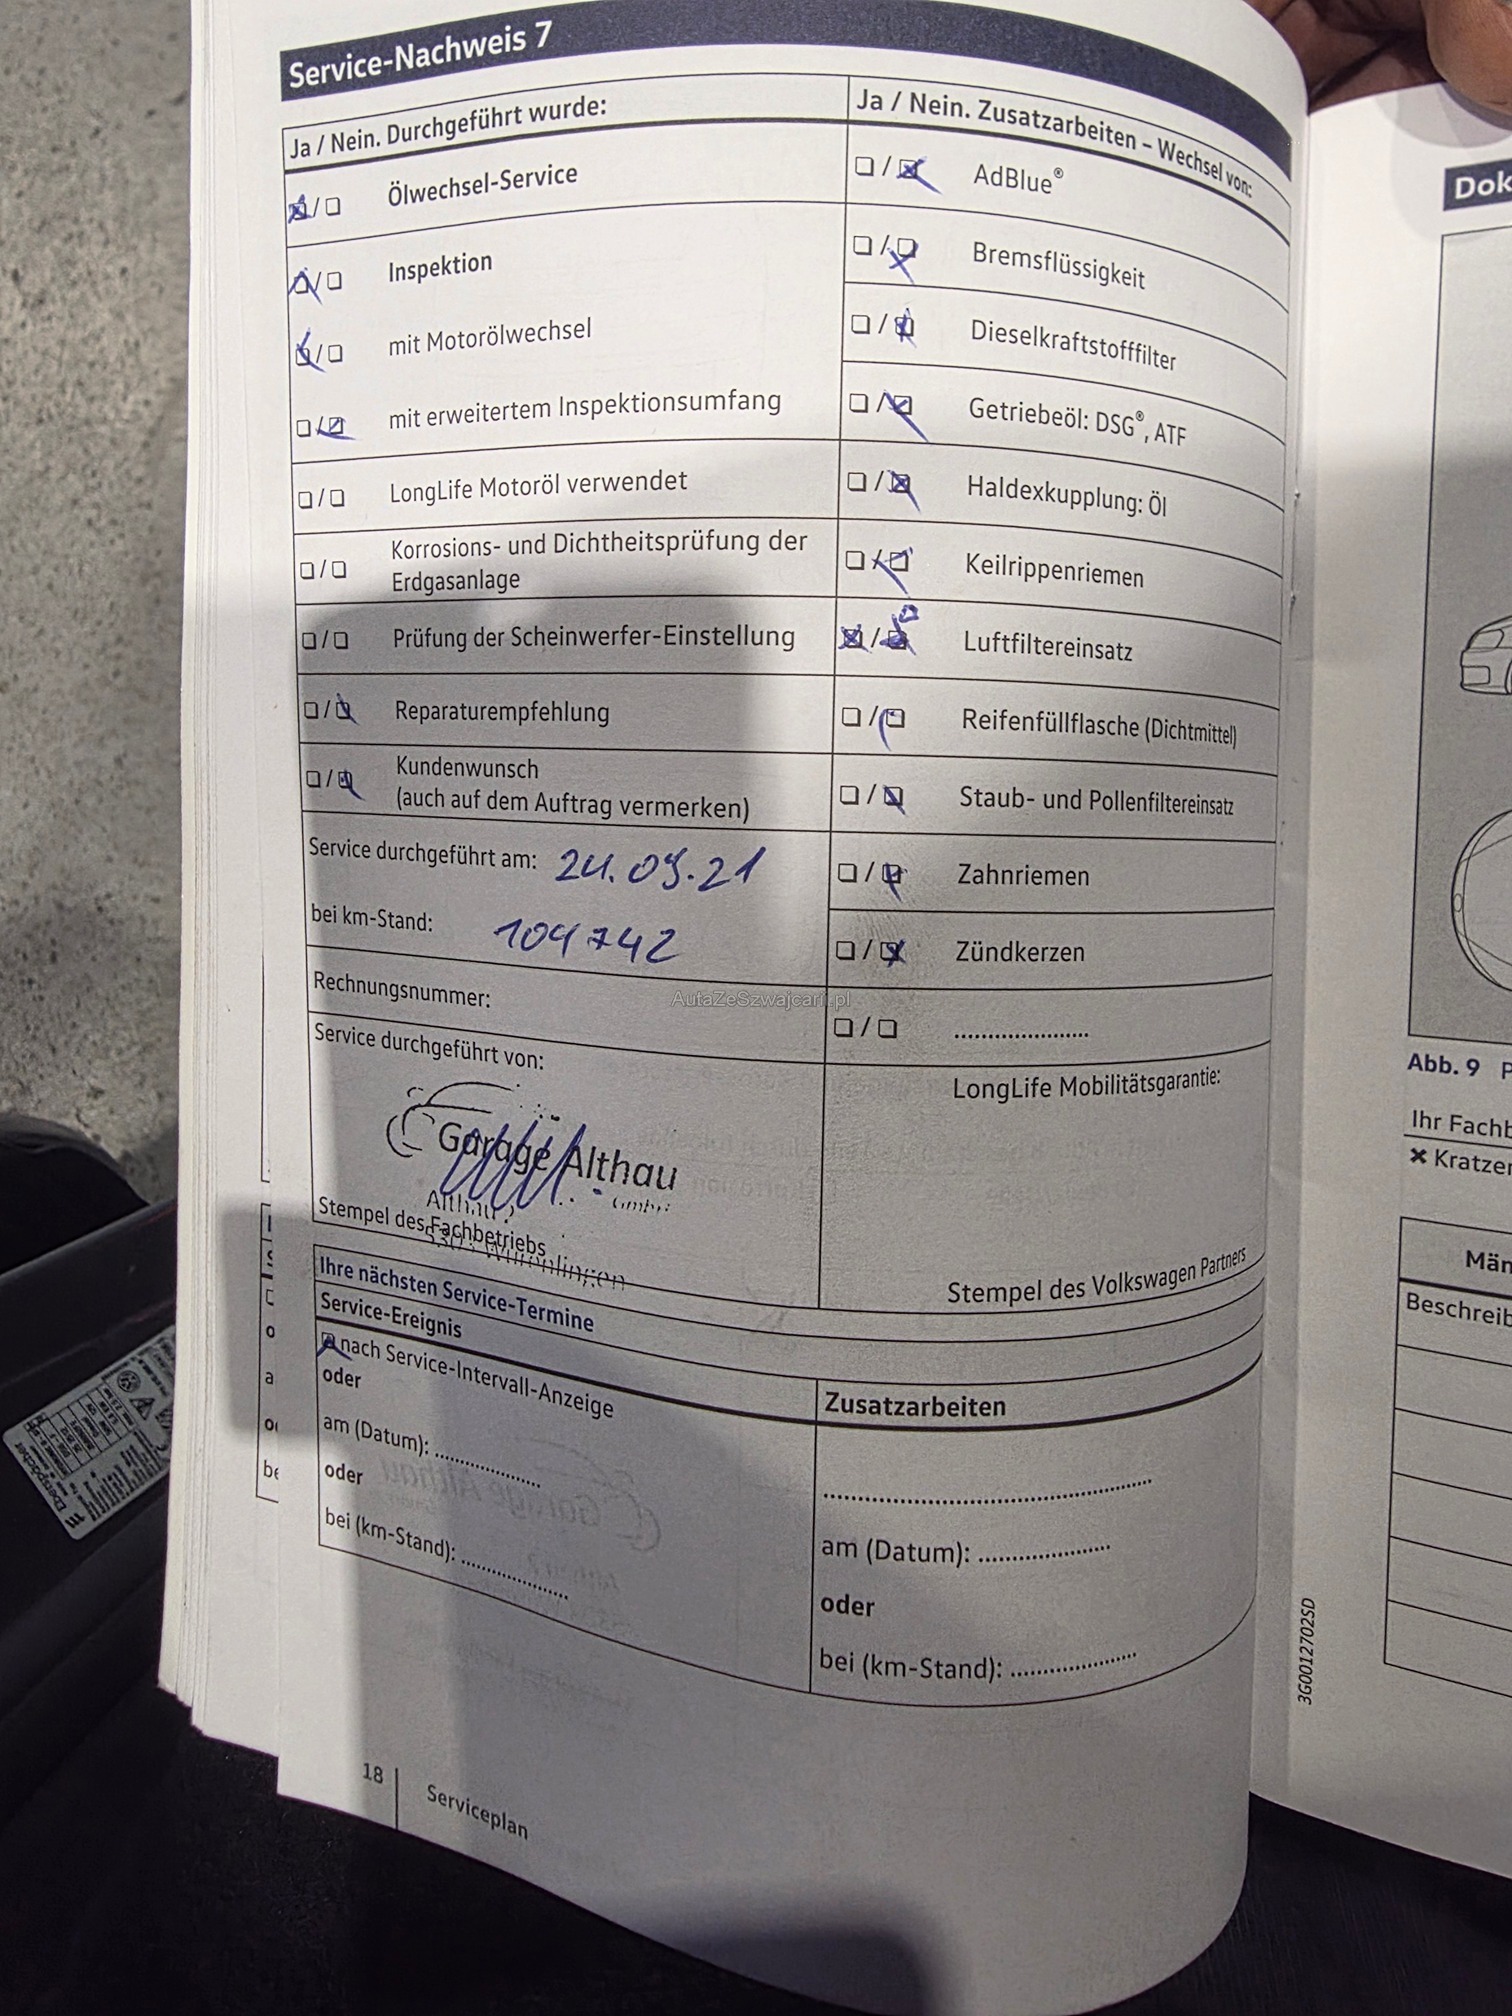 Service-Nachweis 7
Ja / Nein. Durchgeführt wurde:
Ölwechsel-Service
Inspektion
mit Motorölwechsel
mit erweitertem Inspektionsumfang
LongLife Motoröl verwendet
Korrosions- und Dichtheitsprüfung der
Erdgasanlage
Prüfung der Scheinwerfer-Einstellung
Reparaturempfehlung
Kundenwunsch
(auch auf dem Auftrag vermerken)
Service durchgeführt am: 24.09.21
bei km-Stand: 104742
Rechnungsnummer:
Service durchgeführt von:
Garage Althau
GmbH
Stempel des Fachbetriebs
Ja / Nein. Zusatzarbeiten – Wechsel von:
AdBlue®
Bremsflüssigkeit
Dieselkraftstofffilter
Getriebeöl: DSG®, ATF
Haldexkupplung: Öl
Keilrippenriemen
Luftfiltereinsatz
Reifenfüllflasche (Dichtmittel)
Staub- und Pollenfiltereinsatz
Zahnriemen
Zündkerzen
AutaZeSzwajcarii.pl
LongLife Mobilitätsgarantie:
Stempel des Volkswagen Partners
Ihre nächsten Service-Termine
Service-Ereignis
nach Service-Intervall-Anzeige
oder
am (Datum):
oder
bei (km-Stand):
Zusatzarbeiten
am (Datum):
oder
bei (km-Stand):
18
Serviceplan
3G0012702SD
Dok
Abb. 9 P
Ihr Fachb
Kratzer
Män
Beschreib
Eberspächer